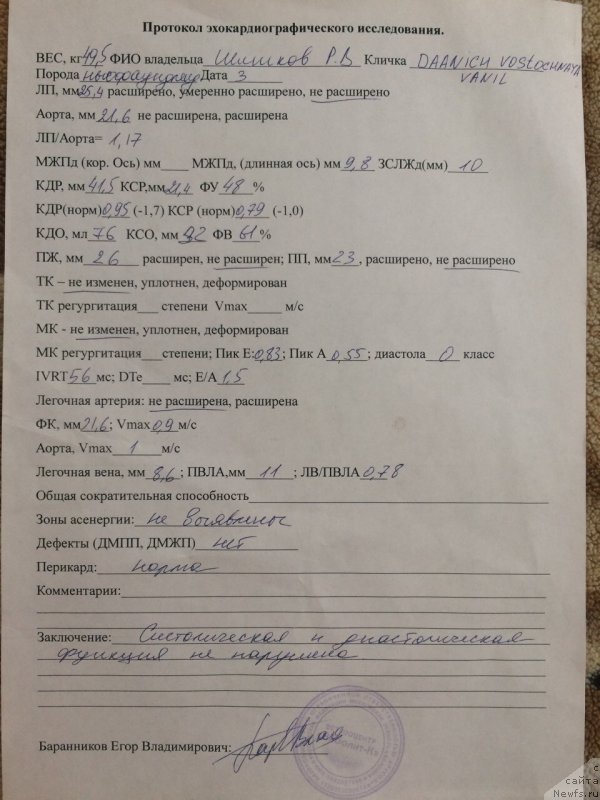 Протокол эхокардиографического исследования.
ВЕС, кг 49,5 ФИО владельца Шлыков Р.В Кличка DAANICH VOSTOCHNAYA
Порода Дата 3 VANIL
ЛП, мм 25,4 расширено, умеренно расширено, не расширено
Аорта, мм 21,6 не расширена, расширена
ЛП/Аорта= 1,17
МЖПд (кор. Ось) мм____ МЖПд, (длинная ось) мм 9,8 ЗСЛЖд(мм) 10
КДР, мм 41,5 КСР,мм 21,4 ФУ 48 %
КДР(норм) 0,95 (-1,7) КСР (норм) 0,79 (-1,0)
КДО, мл 76 КСО, мм ФВ 61 %
ПЖ, мм 26 расширен, не расширен; ПП, мм 23, расширено, не расширено
ТК – не изменен, уплотнен, деформирован
ТК регургитация___ степени Vmax_____ м/с
МК - не изменен, уплотнен, деформирован
МК регургитация___степени; Пик Е: 0,83; Пик А 0,55; диастола 0 класс
IVRT 56 мс; DTe____ мс; Е/А 1,5
Легочная артерия: не расширена, расширена
ФК, мм 21,6; Vmax 0,9 м/с
Аорта, Vmax 1 м/с
Легочная вена, мм 8,6; ПВЛА,мм 11; ЛВ/ПВЛА 0,78
Общая сократительная способность
Зоны асенергии: не выявлены
Дефекты (ДМПП, ДМЖП) нет
Перикард: норма
Комментарии:
Заключение: Систолическая и диастолическая
функция не нарушена
Баранников Егор Владимирович:
с
сайта
Newfs.ru